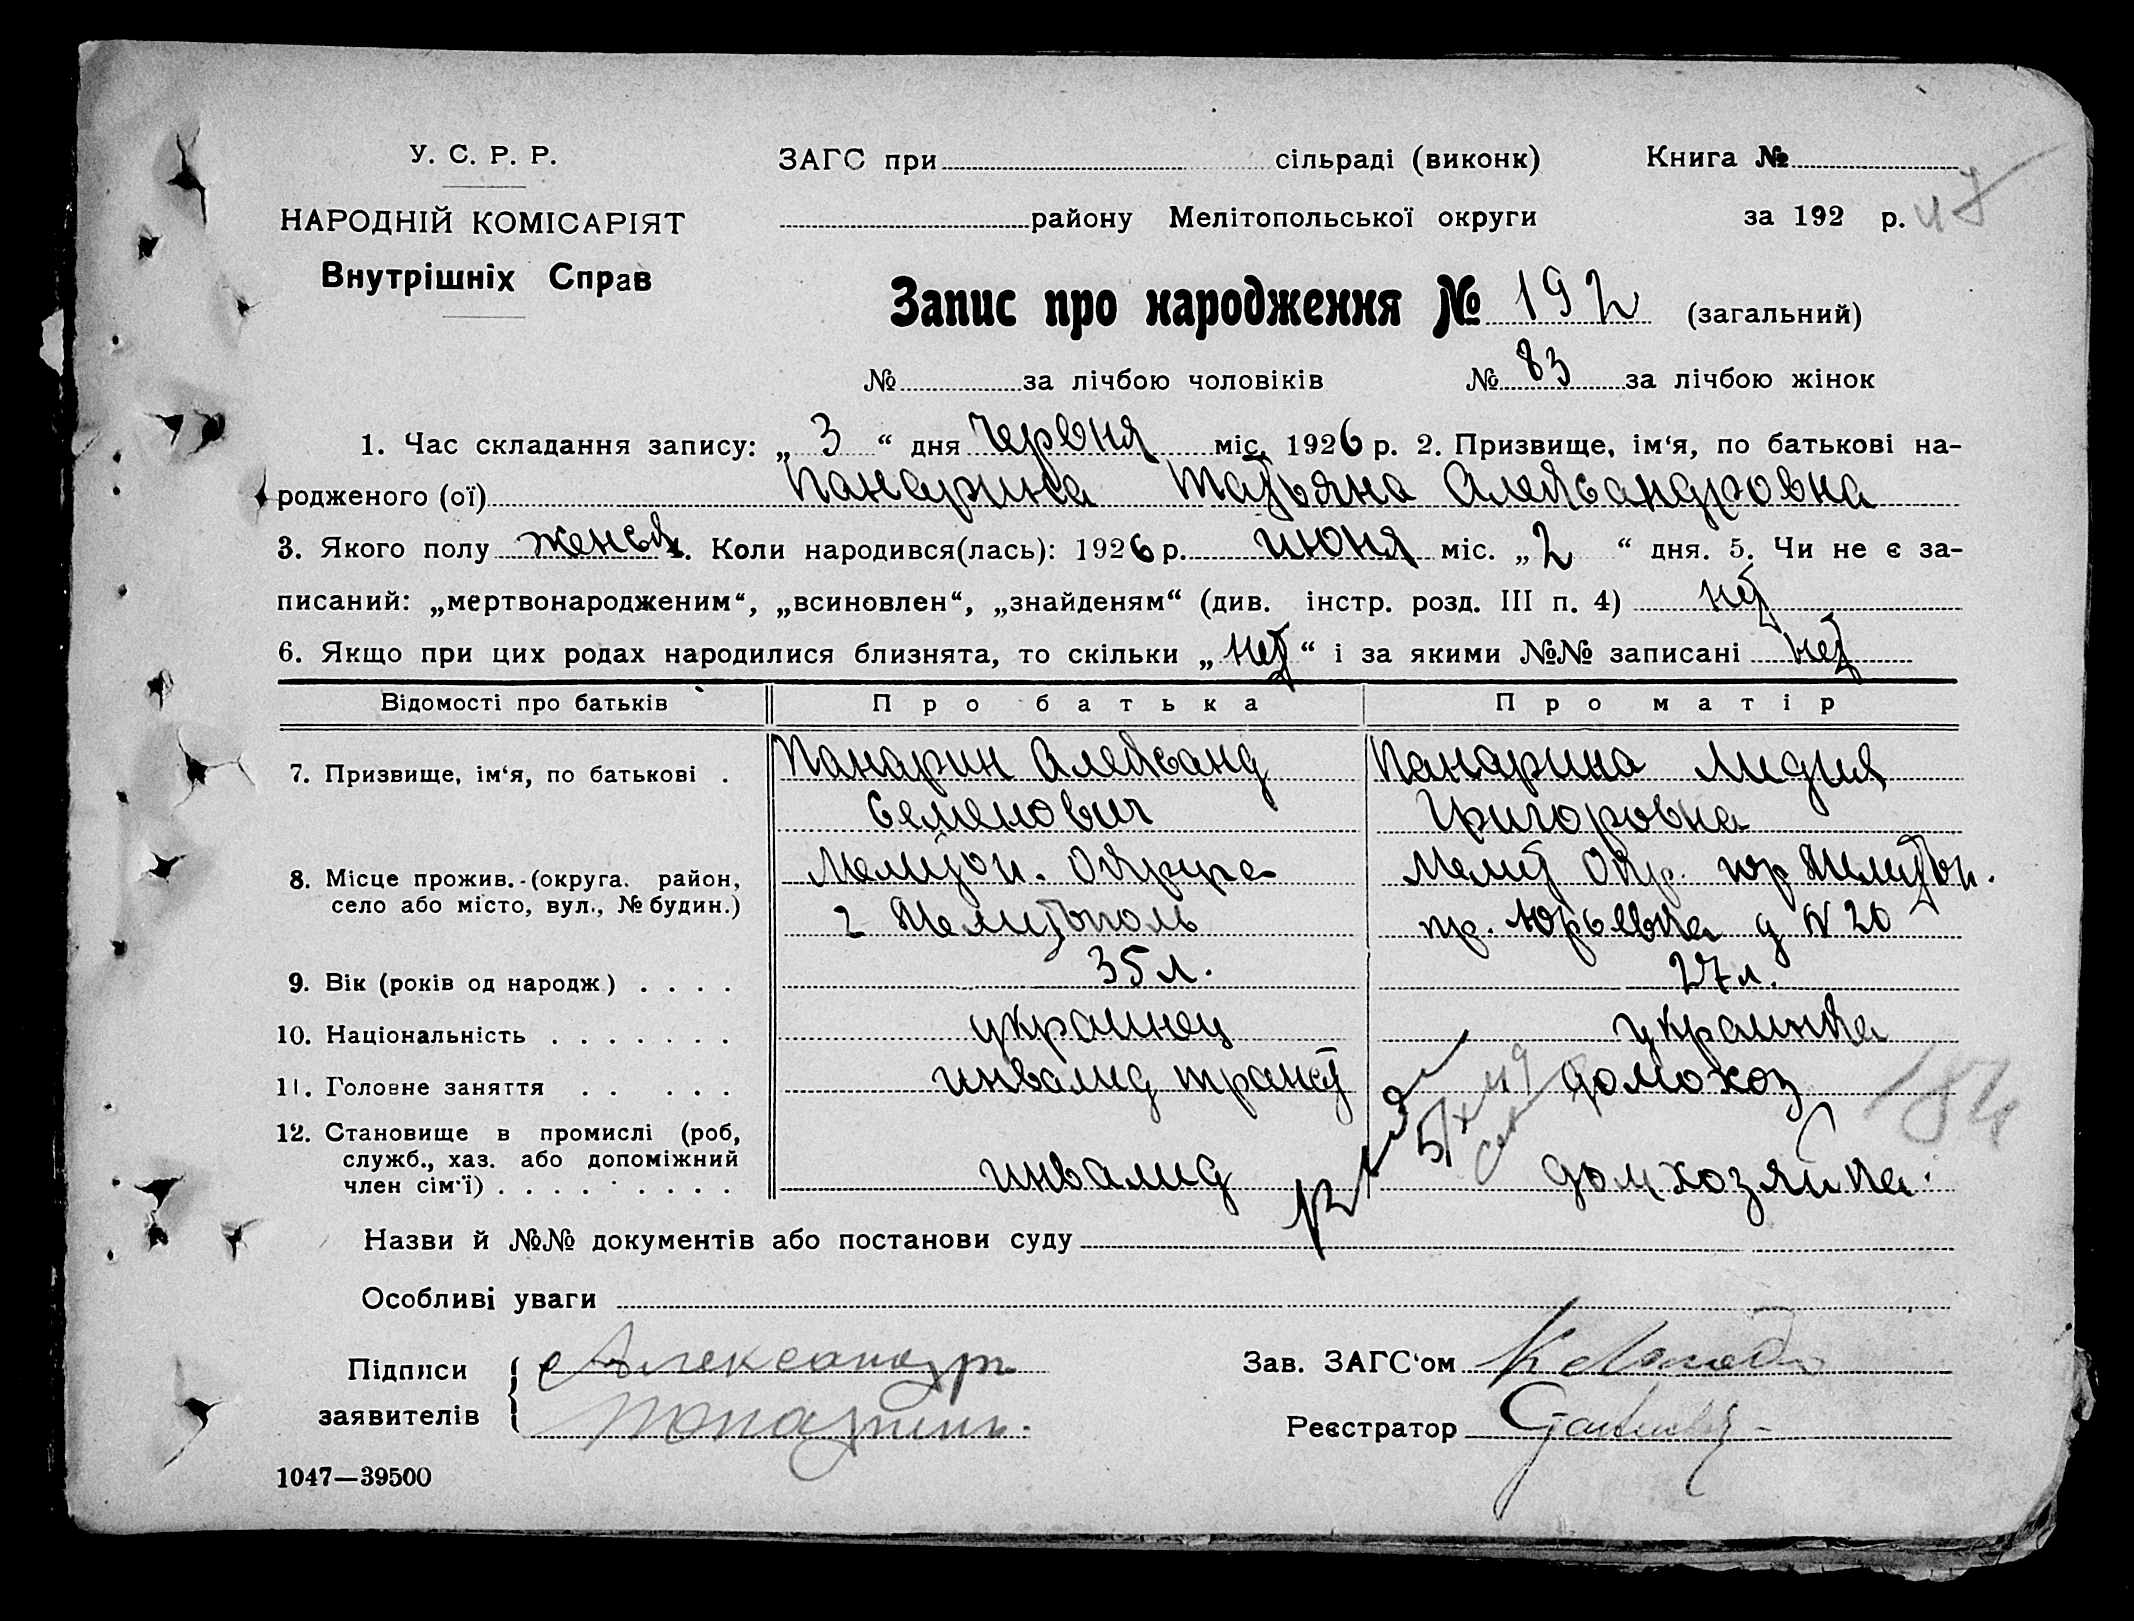 У. С. Р. Р.
НАРОДНІЙ КОМІСАРІЯТ
Внутрішніх Справ
ЗАГС при сільраді (виконк)
Книга №
району Мелітопольської округи
за 192 р.
Запис про народження № 192 (загальний)
№ за лічбою чоловіків № 83 за лічбою жінок
1. Час складання запису: „3“ дня Червня міс. 1926 р. 2. Призвище, ім‘я, по батькові на-
родженого (ої) Панарина Татьяна Александровна
3. Якого полу женск. Коли народився(лась): 1926 р. июня міс. „2“ дня. 5. Чи не є за-
писаний: „мертвонародженим“, „всиновлен“, „знайденям“ (див. інстр. розд. III п. 4) нет
6. Якщо при цих родах народилися близнята, то скільки „нет“ і за якими №№ записані нет
Відомості про батьків Про батька Про матір
7. Призвище, ім‘я, по батькові . Панарин Александ Панарина Лидия
Семенович Григоровна
8. Місце прожив. (округа. район, Мелитоп. Округа Мелит Окр. гор Мелитоп.
село або місто, вул., № будин.) г Мелитополь пр. Юрьевка д N 20
9. Вік (років од народж) . . . . 35 л. 27 л.
10. Національність . . . . . . . украинец украинка
11. Головне заняття . . . . . инвалид транст домохоз
12. Становище в промислі (роб,
служб., хаз. або допоміжний инвалид домхозяйка.
член сім‘ї) . . . . . . . . .
184
Назви й №№ документів або постанови суду
Особливі уваги
Підписи Александр
заявителів Панарин.
Зав. ЗАГС‘ом
Реєстратор
1047—39500